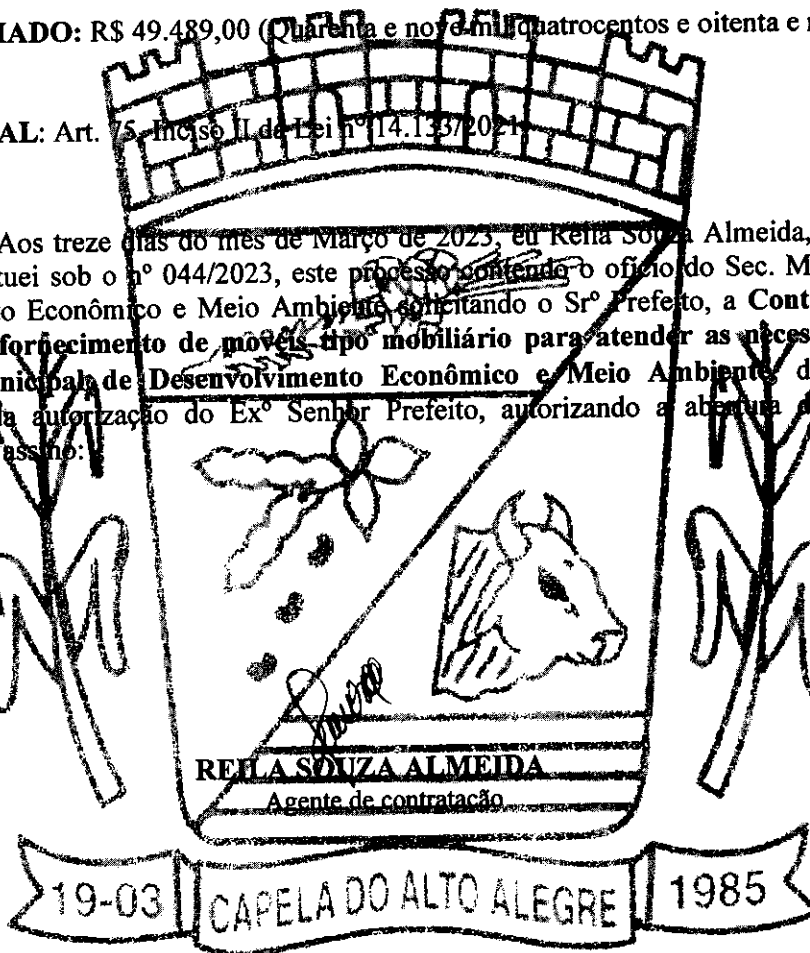 IADO: R$ 49.489,00 (Quarenta e nove mil quatrocentos e oitenta e
AL: Art. 75, Inciso II da Lei nº 14.133/2021
Aos treze dias do mês de Março de 2023, eu Reila Souza Almeida,
tuei sob o nº 044/2023, este processo contendo o ofício do Sec. M
o Econômico e Meio Ambiente solicitando o Srº Prefeito, a Cont
fornecimento de móveis tipo mobiliário para atender as neces
nicipal de Desenvolvimento Econômico e Meio Ambiente, d
la autorização do Exº Senhor Prefeito, autorizando a abertura d
assino:
REILA SOUZA ALMEIDA
Agente de contratação
19-03 CAPELA DO ALTO ALEGRE 1985